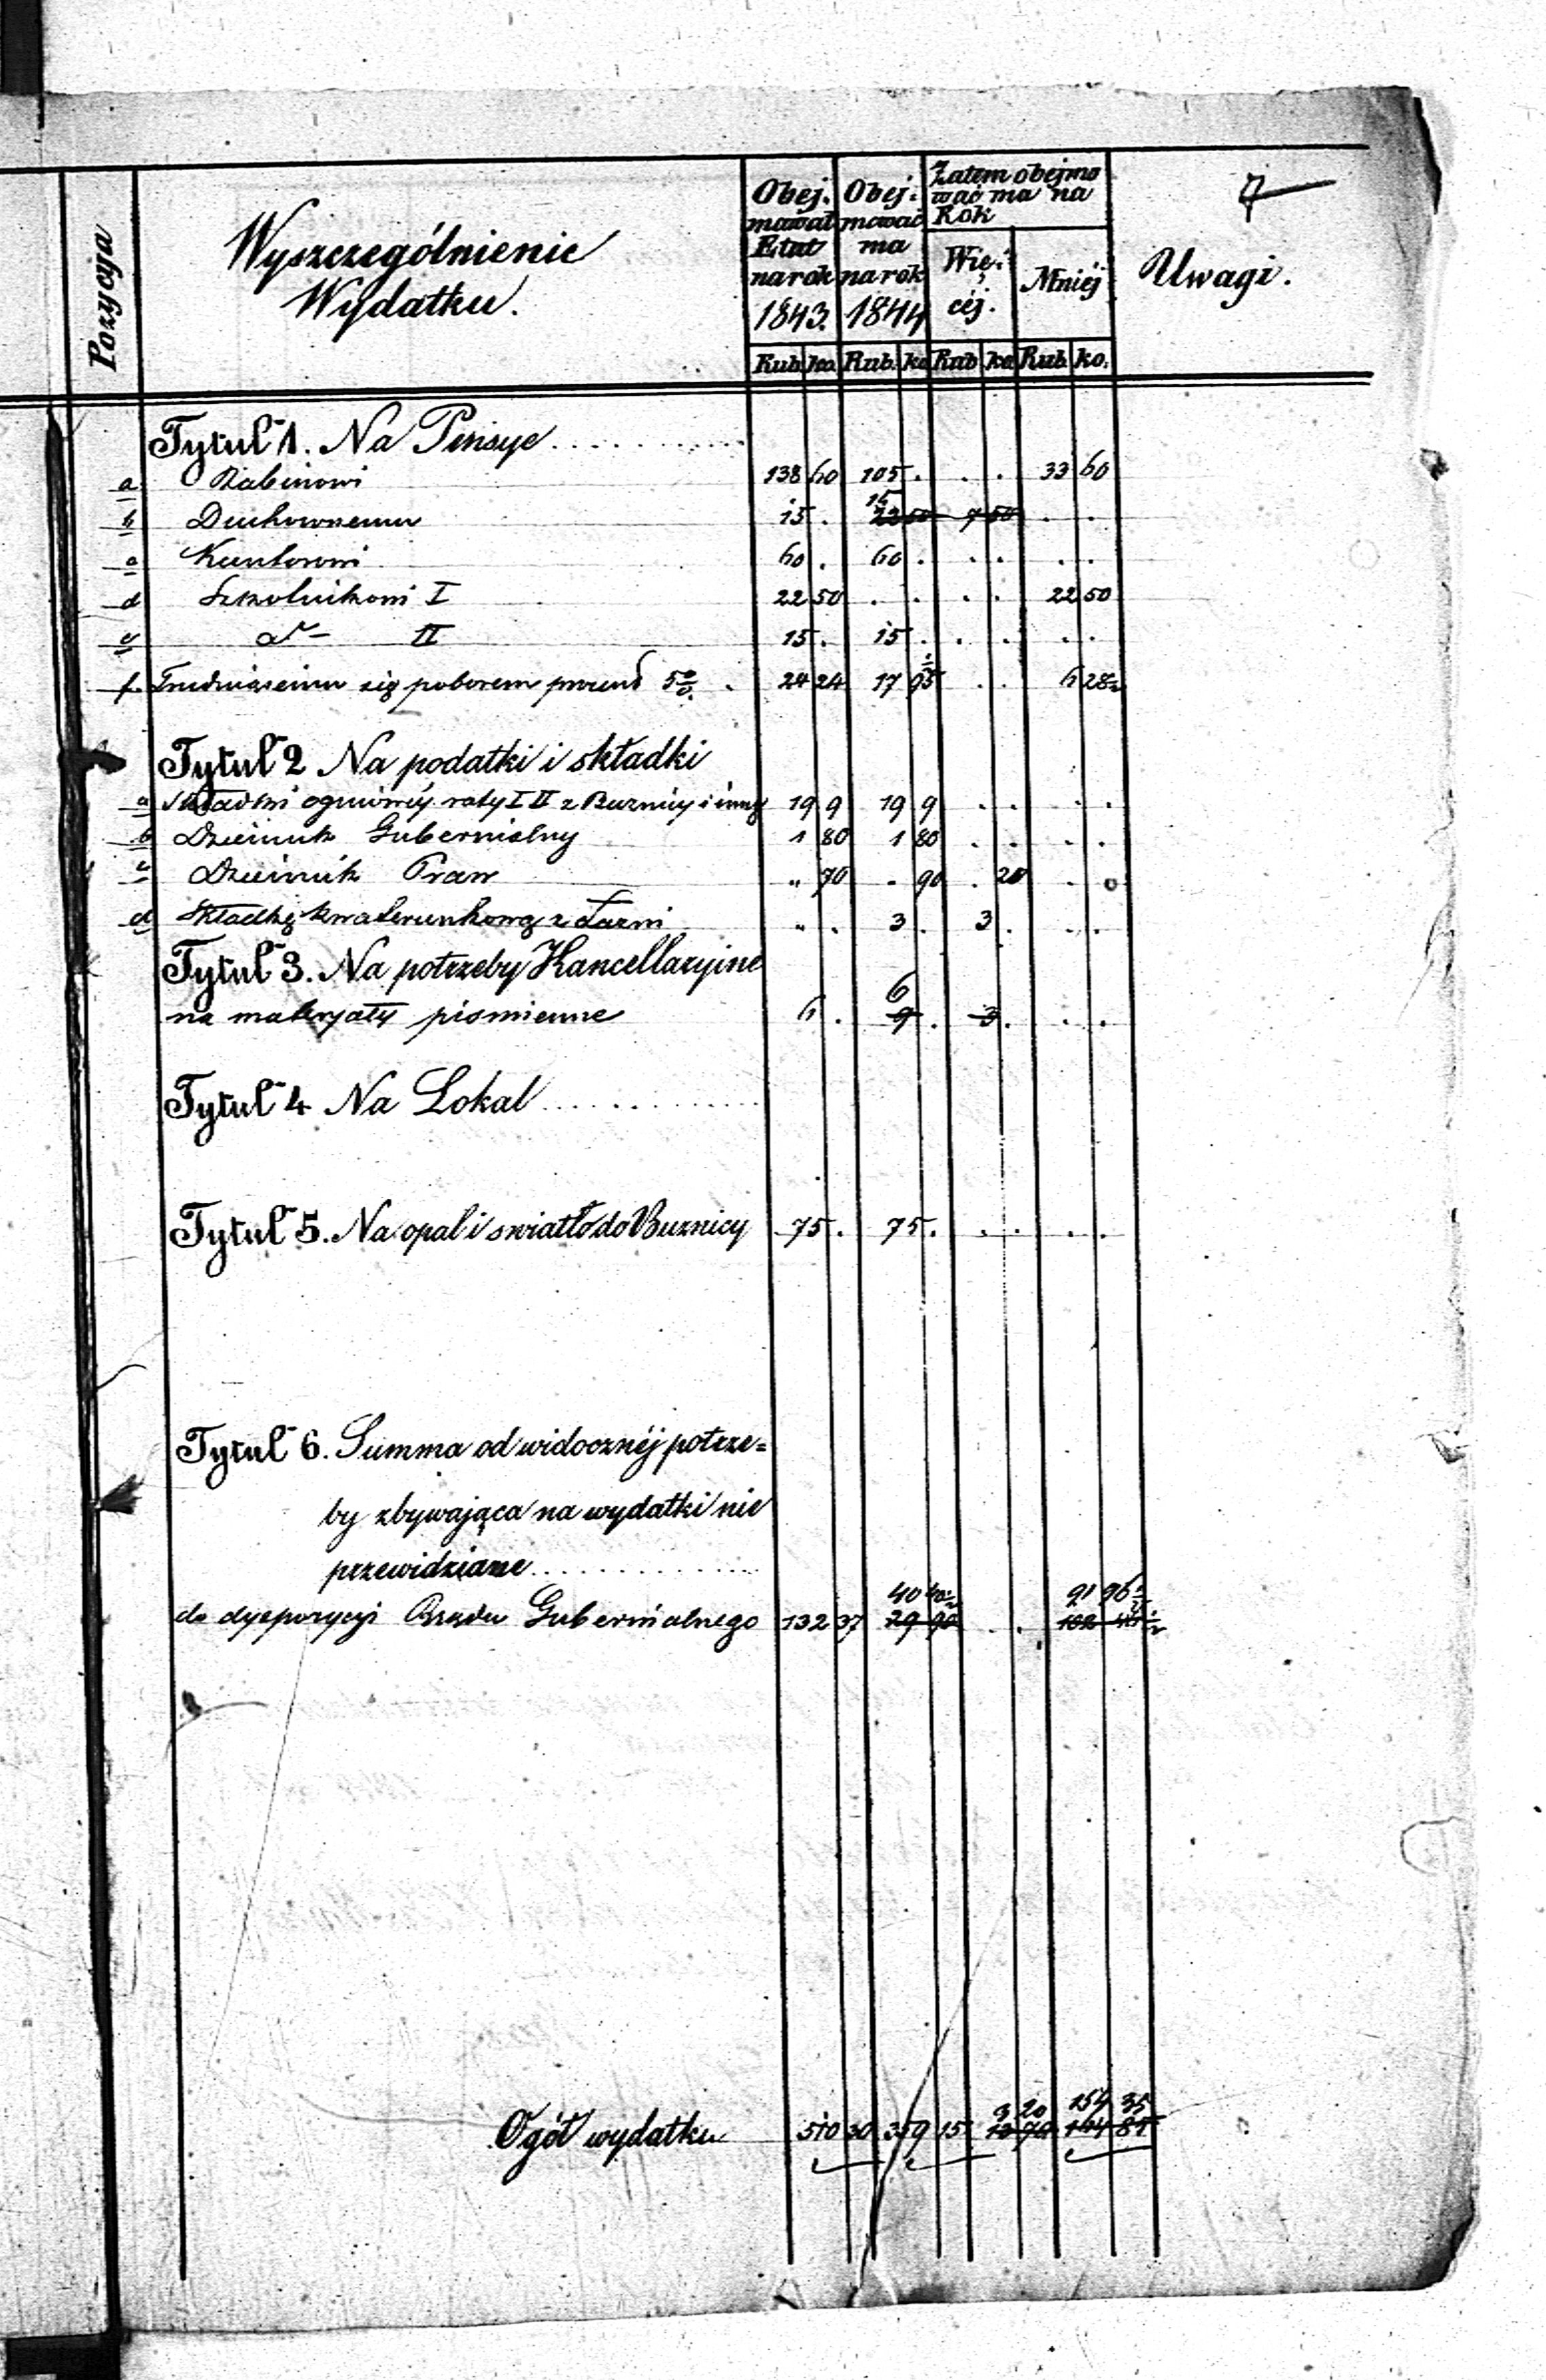 7
Pozycja
Wyszczególnienie
Wydatku.
Obej. mował Etat na rok 1843.
Obej: mować ma na rok 1844
Zatem obejmo wać ma na Rok
Wię: cej.
Mniéj
Uwagi.
Rub ko. Rub. ko Rub ko Rub ko.
Tytuł 1. Na Pensye
a Rabinowi 138 60 105 . . . 33 60
b Duchownemu 15 . 15 22 50 7 50 . .
c Kantorowi 60 . 60 . . . . .
d Szkolnikowi I 22 50 . . . . 22 50
e d°- II 15 . 15 . . . . .
f. Trudniącemu się poborem procent 5% . 24 24 17 95½ . . 6 28½
Tytuł 2 Na podatki i składki
a Składki ogniowéj raty I II z Buznicy i inny 19 9 19 9 . . . .
b Dziennik Gubernialny 1 80 1 80 . . . .
c Dziennik Praw " 70 . 90 . 20 . .
d Składkę kwaterunkową z Łazni " . 3 . 3 . . .
Tytuł 3. Na potrzeby Kancellaryine
6
na materyały pismienne 6 . 9 . 3 . . .
Tytuł 4 Na Lokal
Tytuł 5. Na opał i swiatło do Buznicy 75 . 75 . . . . .
Tytuł 6. Summa od widocznéj potrze=
by zbywająca na wydatki nie
przewidziane
40 40½ 91 96½
do dyspozycyi Rządu Gubernialnego 132 37 29 90 . .
3 20 154 35
Ogół wydatku 510 30 359 15 13 70 164 85